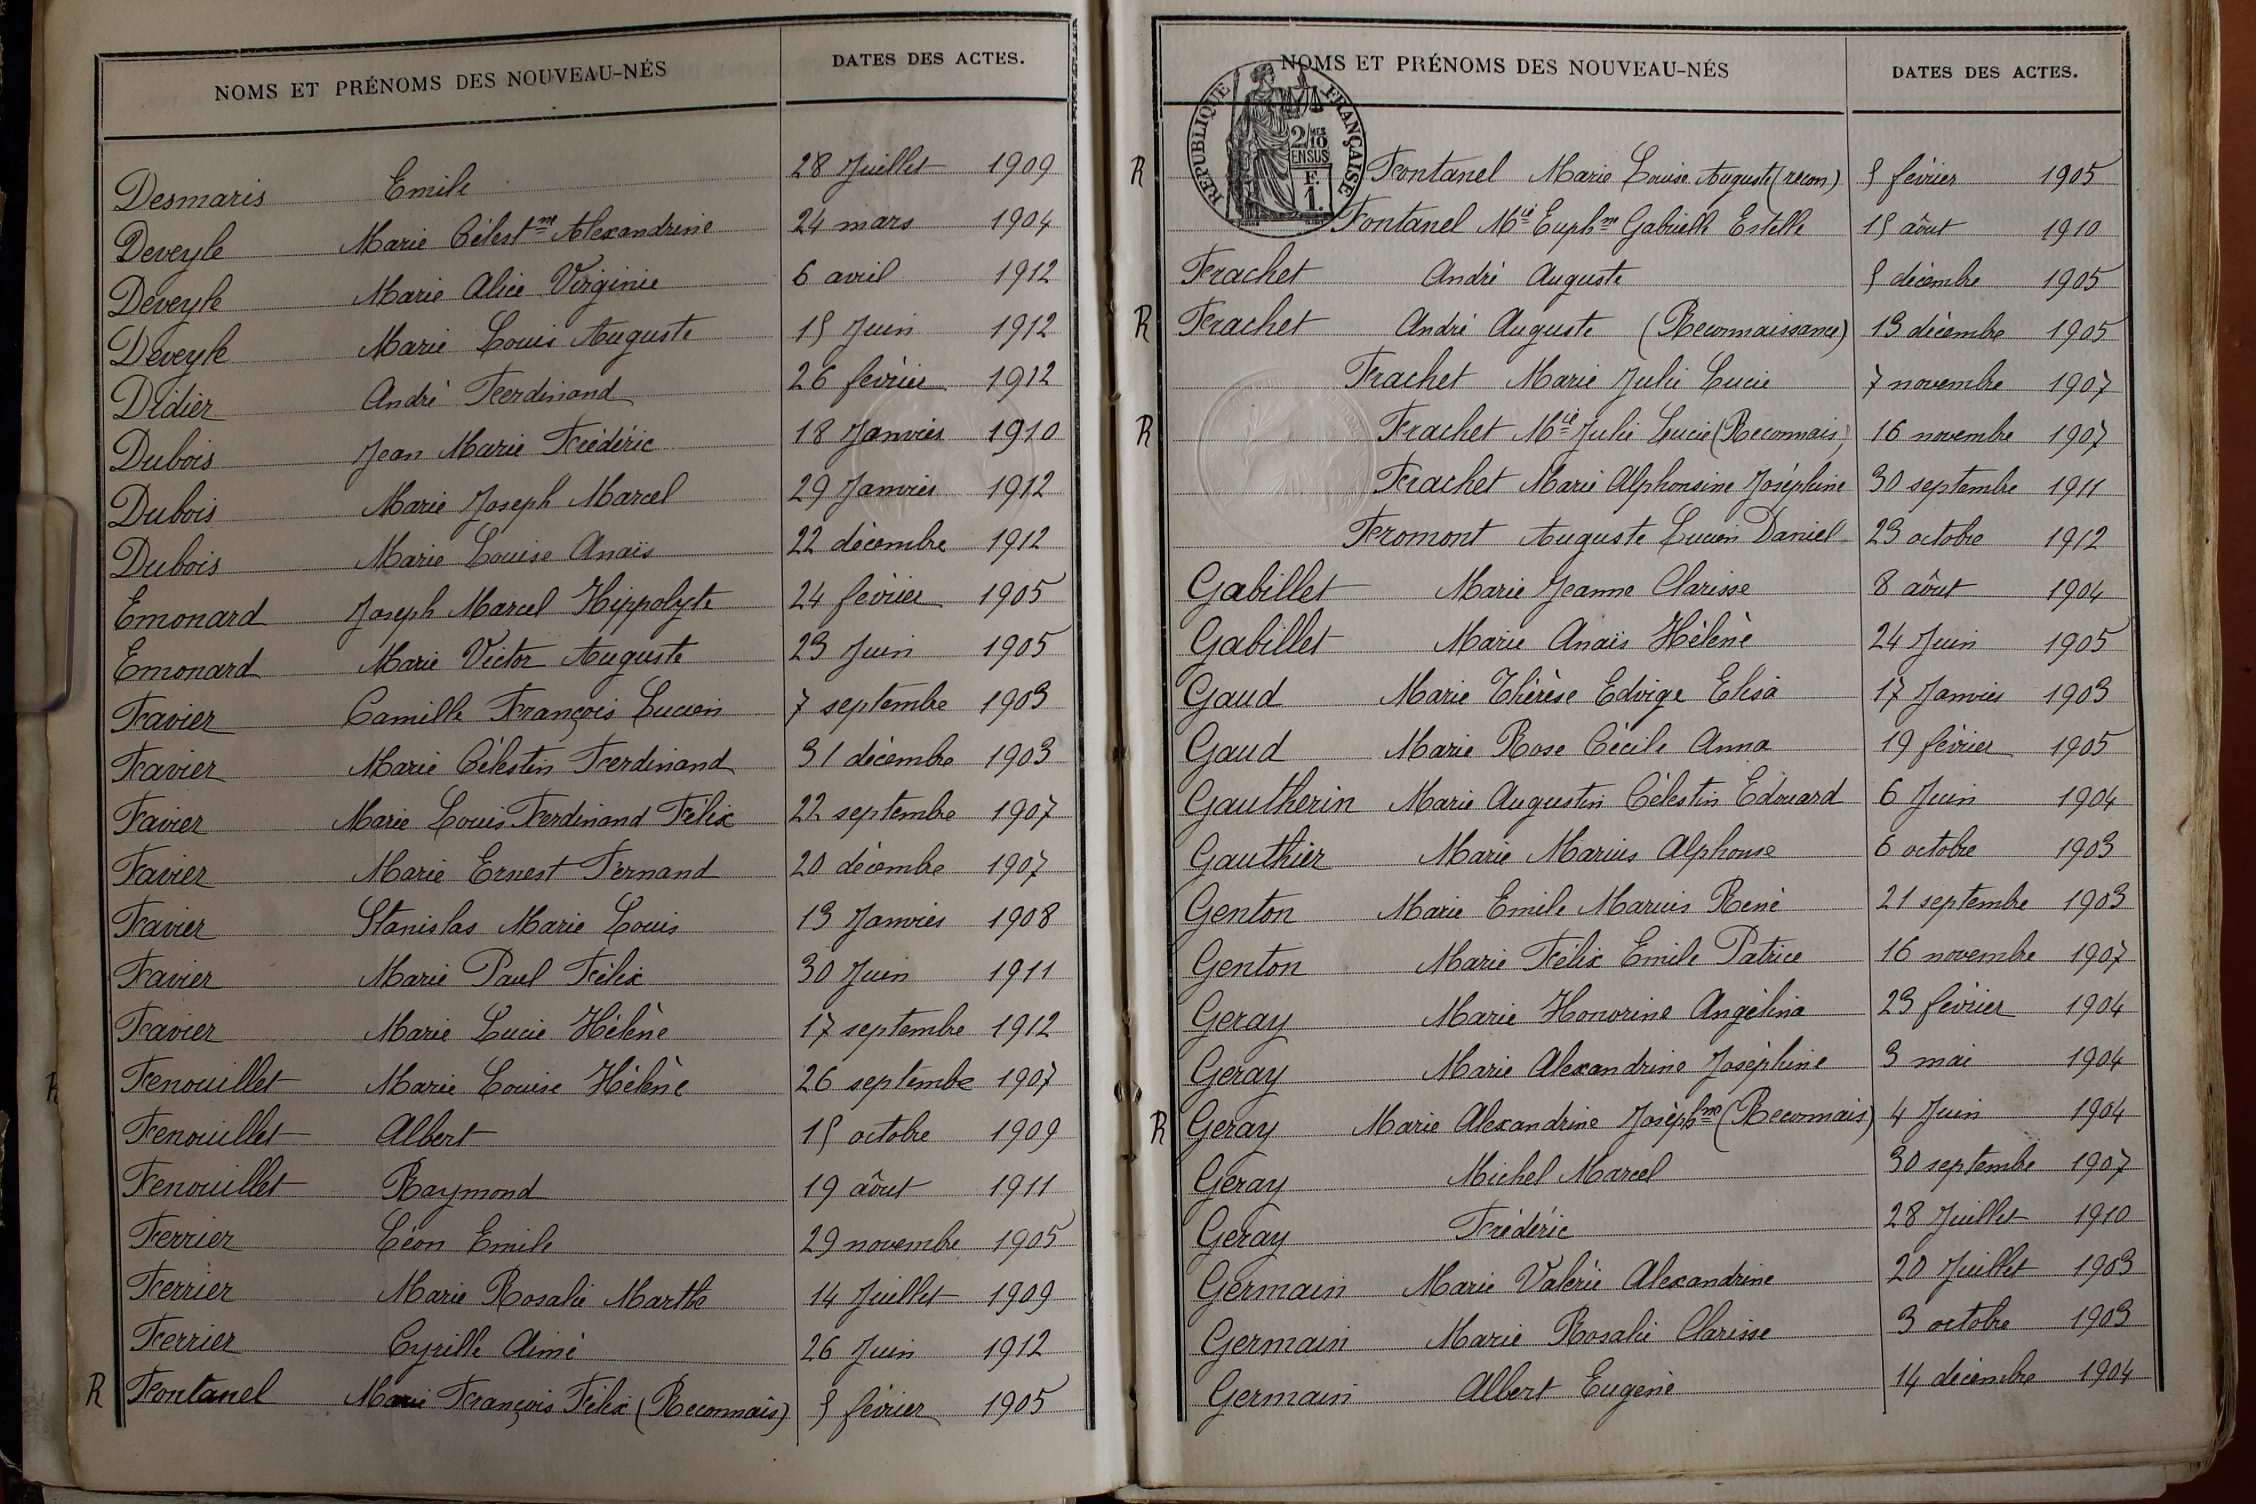 NOMS ET PRÉNOMS DES NOUVEAU-NÉS DATES DES ACTES.
Desmaris Emile 28 Juillet 1909
Deveyle Marie Célestne Alexandrine 24 mars 1904
Deveyle Marie Alice Virginie 6 avril 1912
Deveyle Marie Louis Auguste 15 Juin 1912
Didier André Ferdinand 26 février 1912
Dubois Jean Marie Frédéric 18 Janvier 1910
Dubois Marie Joseph Marcel 29 Janvier 1912
Dubois Marie Louise Anaïs 22 décembre 1912
Emonard Joseph Marcel Hippolyte 24 février 1905
Emonard Marie Victor Auguste 23 Juin 1905
Favier Camille François Lucien 7 septembre 1903
Favier Marie Célestin Ferdinand 31 décembre 1903
Favier Marie Louis Ferdinand Félix 22 septembre 1907
Favier Marie Ernest Fernand 20 décembre 1907
Favier Stanislas Marie Louis 13 Janvier 1908
Favier Marie Paul Félix 30 Juin 1911
Favier Marie Lucie Hélène 17 septembre 1912
Fenouillet Marie Louise Hélène 26 septembre 1907
Fenouillet Albert 15 octobre 1909
Fenouillet Raymond 19 aôut 1911
Ferrier Léon Emile 29 novembre 1905
Ferrier Marie Rosalie Marthe 14 Juillet 1909
Ferrier Cyrille Aimé 26 Juin 1912
R Fontanel Marie François Félix (Reconnais) 5 février 1905
NOMS ET PRÉNOMS DES NOUVEAU-NÉS DATES DES ACTES.
RÉPUBLIQUE FRANÇAISE
2/10 MES
EN SUS
F.
1.
R Fontanel Marie Louise Auguste (recon) 5 février 1905
Fontanel Mie Euphne Gabrielle Estelle 15 aôut 1910
Frachet André Auguste 5 décembre 1905
R Frachet André Auguste (Reconnaissance) 13 décembre 1905
Frachet Marie Julie Lucie 7 novembre 1907
R Frachet Mie Julie Lucie (Reconnais) 16 novembre 1907
Frachet Marie Alphonsine Joséphine 30 septembre 1911
Fromont Auguste Lucien Daniel 23 octobre 1912
Gabillet Marie Jeanne Clarisse 8 aôut 1904
Gabillet Marie Anaïs Hélène 24 Juin 1905
Gaud Marie Thérèse Edvige Elisa 17 Janvier 1903
Gaud Marie Rose Cécile Anna 19 février 1905
Gautherin Marie Augustin Célestin Edouard 6 Juin 1904
Gauthier Marie Marius Alphonse 6 octobre 1903
Genton Marie Emile Marius René 21 septembre 1903
Genton Marie Félix Emile Patrice 16 novembre 1907
Geray Marie Honorine Angélina 23 février 1904
Geray Marie Alexandrine Joséphine 3 mai 1904
R Geray Marie Alexandrine Joséphne (Reconnais) 4 Juin 1904
Geray Michel Marcel 30 septembre 1907
Geray Frédéric 28 Juillet 1910
Germain Marie Valérie Alexandrine 20 Juillet 1903
Germain Marie Rosalie Clarisse 3 octobre 1903
Germain Albert Eugène 14 décembre 1904